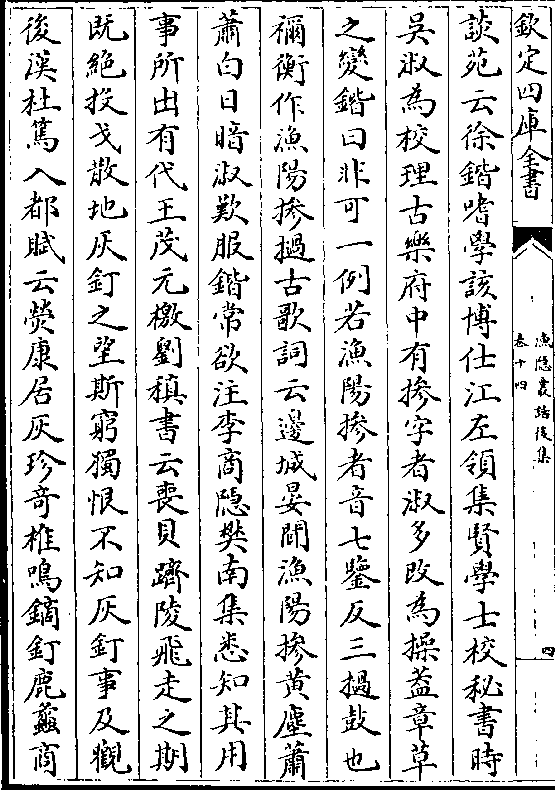 欽定四庫全書
漁隱叢話後集
卷十四
四
談苑云徐鍇嗜學該博仕江左領集賢學士校秘書時
吳淑為校理古樂府中有摻字者淑多改為操蓋章草
之變鍇曰非可一例若漁陽摻者音七鑒反三撾鼓也
禰衡作漁陽摻撾古歌詞云邊城晏開漁陽摻黃塵蕭
蕭白日暗淑歎服鍇常欲注李商隐樊南集悉知其用
事所出有代王茂元檄劉稹書云喪貝躋陵飛走之期
既絶投戈散地灰釘之望斯窮獨恨不知灰釘事及觀
後漢杜篤入都賦云焚康居灰珍奇椎鳴鏑釘鹿蠡商